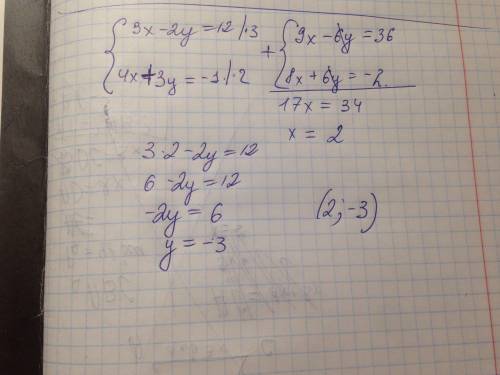 3x - 2y = 12 / ·3
4x + 3y = -1 / ·2
+
9x - 6y = 36
8x + 6y = -2
17x = 34
x = 2
3 · 2 - 2y = 12
6 - 2y = 12
-2y = 6
y = -3
(2; -3)